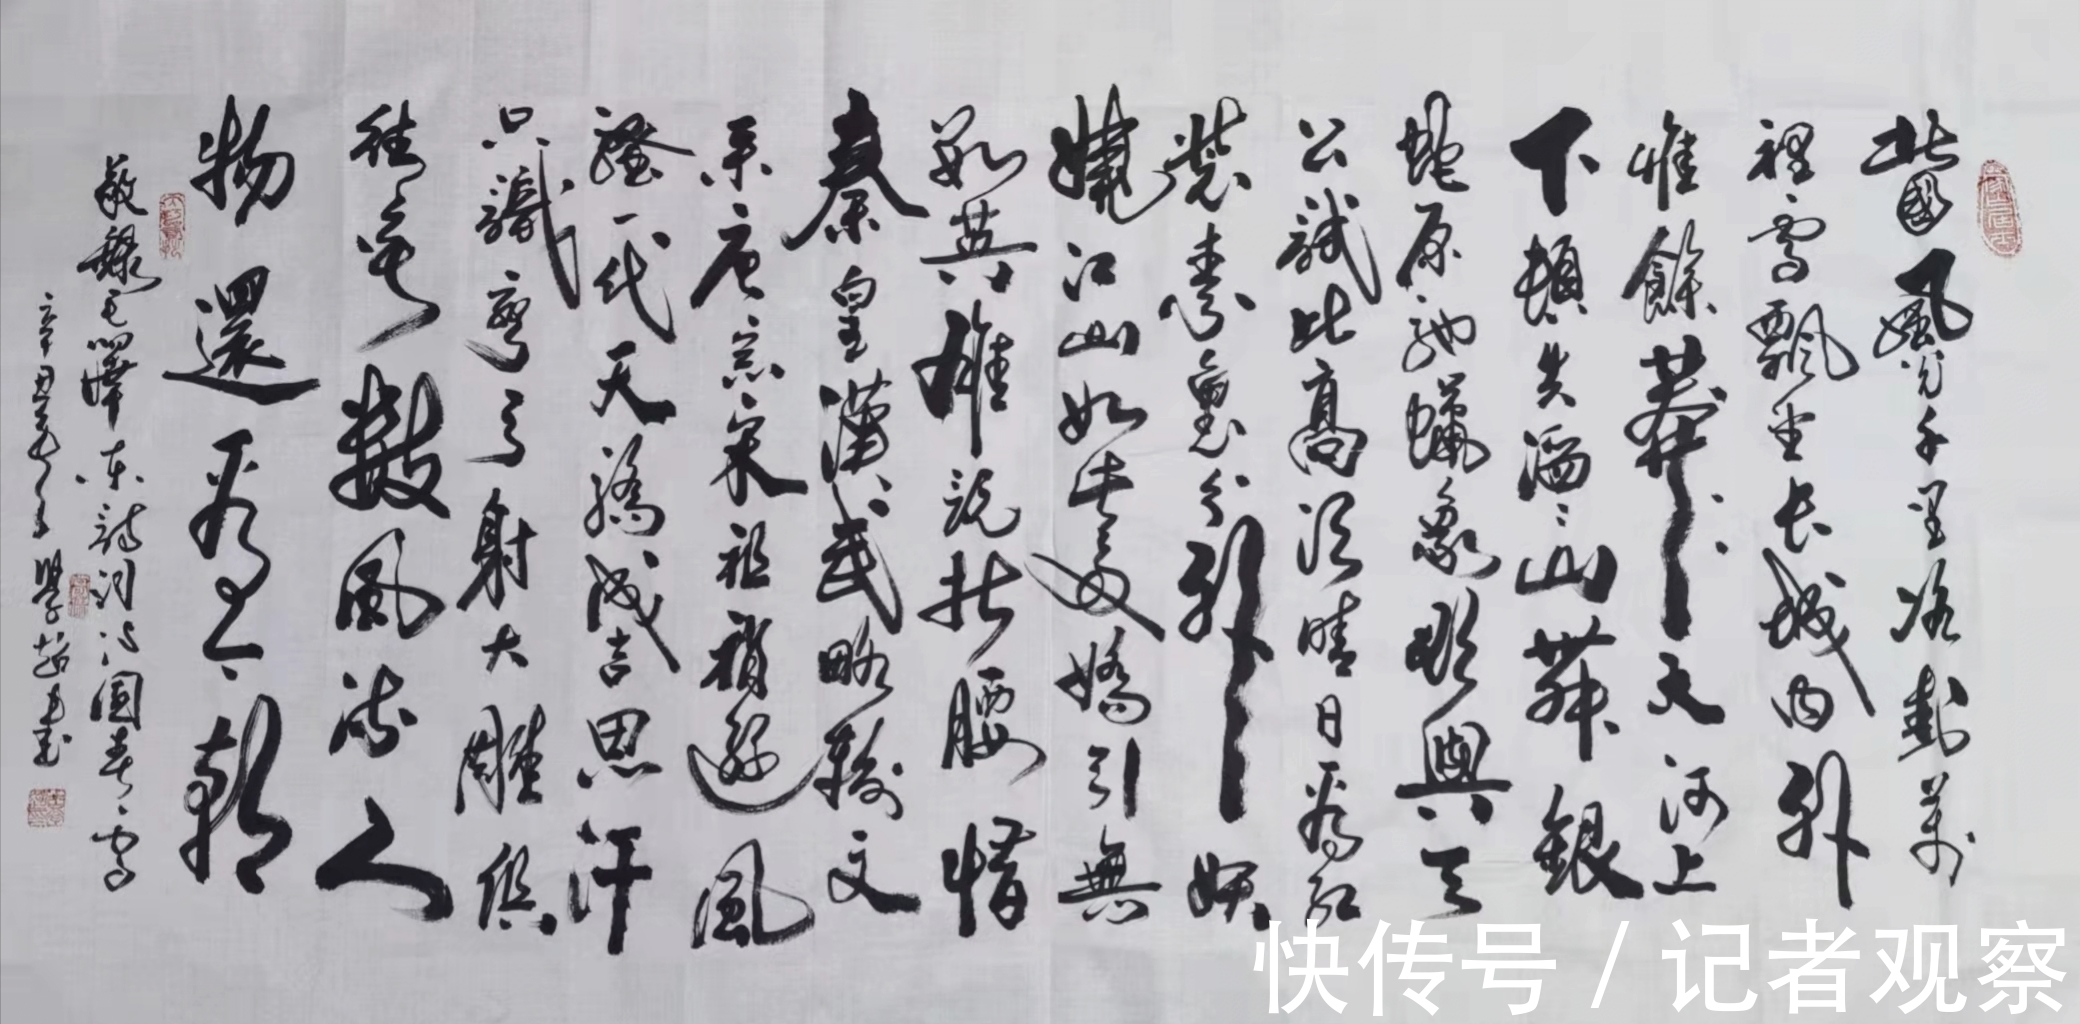 北國風光千里冰封萬
裡雪飄望长城内外
惟餘莽莽大河上
下頓失滔滔山舞銀
蛇原馳蠟象欲與天
公試比高須晴日看红
裝素裹分外妖
嬈江山如此多嬌引無
數英雄競折腰惜
秦皇漢武略輸文
采唐宗宋祖稍遜風
騷一代天驕成吉思汗
只識彎弓射大雕俱
往矣數風流人
物還看今朝
敬錄毛澤東詩詞沁園春雪
辛丑
快传号 / 记者观察